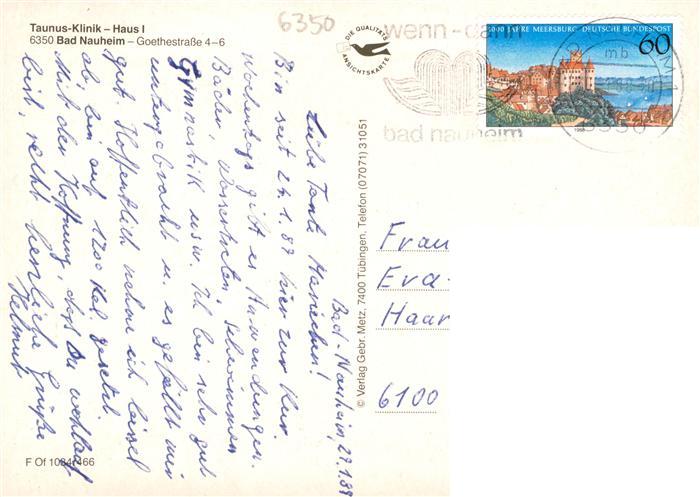 Taunus-Klinik – Haus I
6350 Bad Nauheim – Goethestraße 4–6
6350
DIE QUALITÄTS
ANSICHTSKARTE
wenn - dann
bad nauheim
2000 JAHRE MEERSBURG DEUTSCHE BUNDESPOST
60
1988
mb
6350
© Verlag Gebr. Metz, 7400 Tübingen, Telefon (07071) 31051
Bad-Nauheim, 27.1.89
Liebe Tante Mariechen!
Bin seit 24.1.89 hier zur Kur.
Wochentags gibt es Anwendungen.
Bäder, Wassertreten, Schwimmen
Gymnastik usw. Ich bin sehr gut
untergebracht u. es gefällt mir
gut. Hoffentlich nehme ich bissel
ab, bin auf 1200 Kal. gesetzt.
Mit der Hoffnung, daß Du wohlauf
bist, recht herzliche Grüße
Helmut
Frau
Eva-
Haar
6100
F Of 10847466